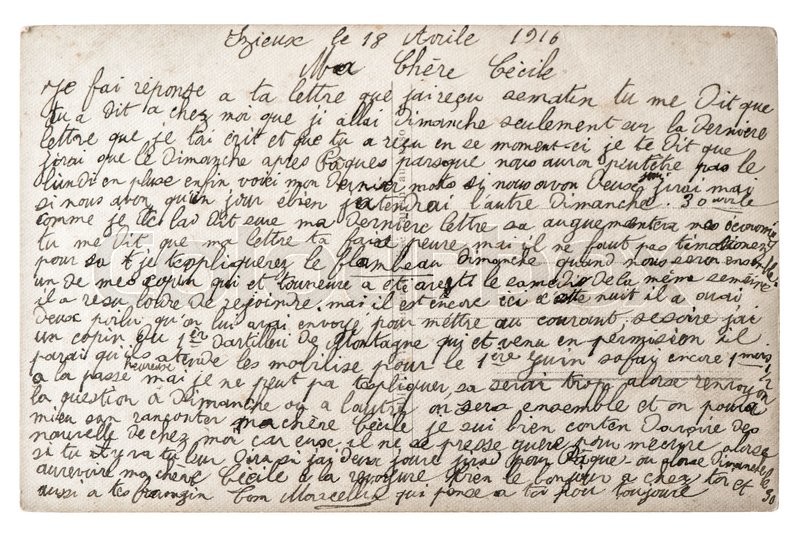 Izieux le 18 Avrile 1916
Ma Chère Cécile
Je fai réponse a ta lettre que jai reçu se matin tu me dit que
tu a dit a chez moi que je allai Dimanche seulement sur la dernière
lettre que je tai crit et que tu a reçu en se moment-ci je te dit que
jirai que le Dimanche apres Paques parsque nous auron peutêtre pas le
lundi en pluse enfin voici mon dernier mots si nous avon deux jirai mai
si nous avon qu'un jour ebien jatendrai l'autre Dimanche 30 avrile
comme je te lai dit sure ma dernière lettre sa augmentera mes économi
tu me dit que ma lettre ta fait peure mai il ne faut pas
pour sa je texpliquerer le flambeau Dimanche quand nous seron ensemble
un de mes copin qui et a ete areté le samedi de la même semaine
il a resu lordre de rejoindre mai il est encore ici cette nuit il a
deux poilu qu'on lui envoyé pour mettre au courant, se soire jai
un copin du 1ère dartilleri de Montagne qui et venu en permision il
parai qu'ils atende les mobilise pour le 1ère juin safai encore 1 mois
a la passé heureuse mai je ne peut pa texpliquer, sa serai trop alors renvoyon
la question a Dimanche ou a lautre on sera ensemble et on poura
mieu san raconter ma chère Cécile je sui bien conten davoire des
nouvelle de chez moi car eux il ne se presse guere pour mecrire alors
si tu y va tu leur dira si jai deux jours jirai pour Paque ou alors Dimanche le 30
aurevoire ma chère Cécile a la revoyure bien le bonjour a chez toi et
aussi a tes frangin ton Marcellin qui pense a toi pour toujoure